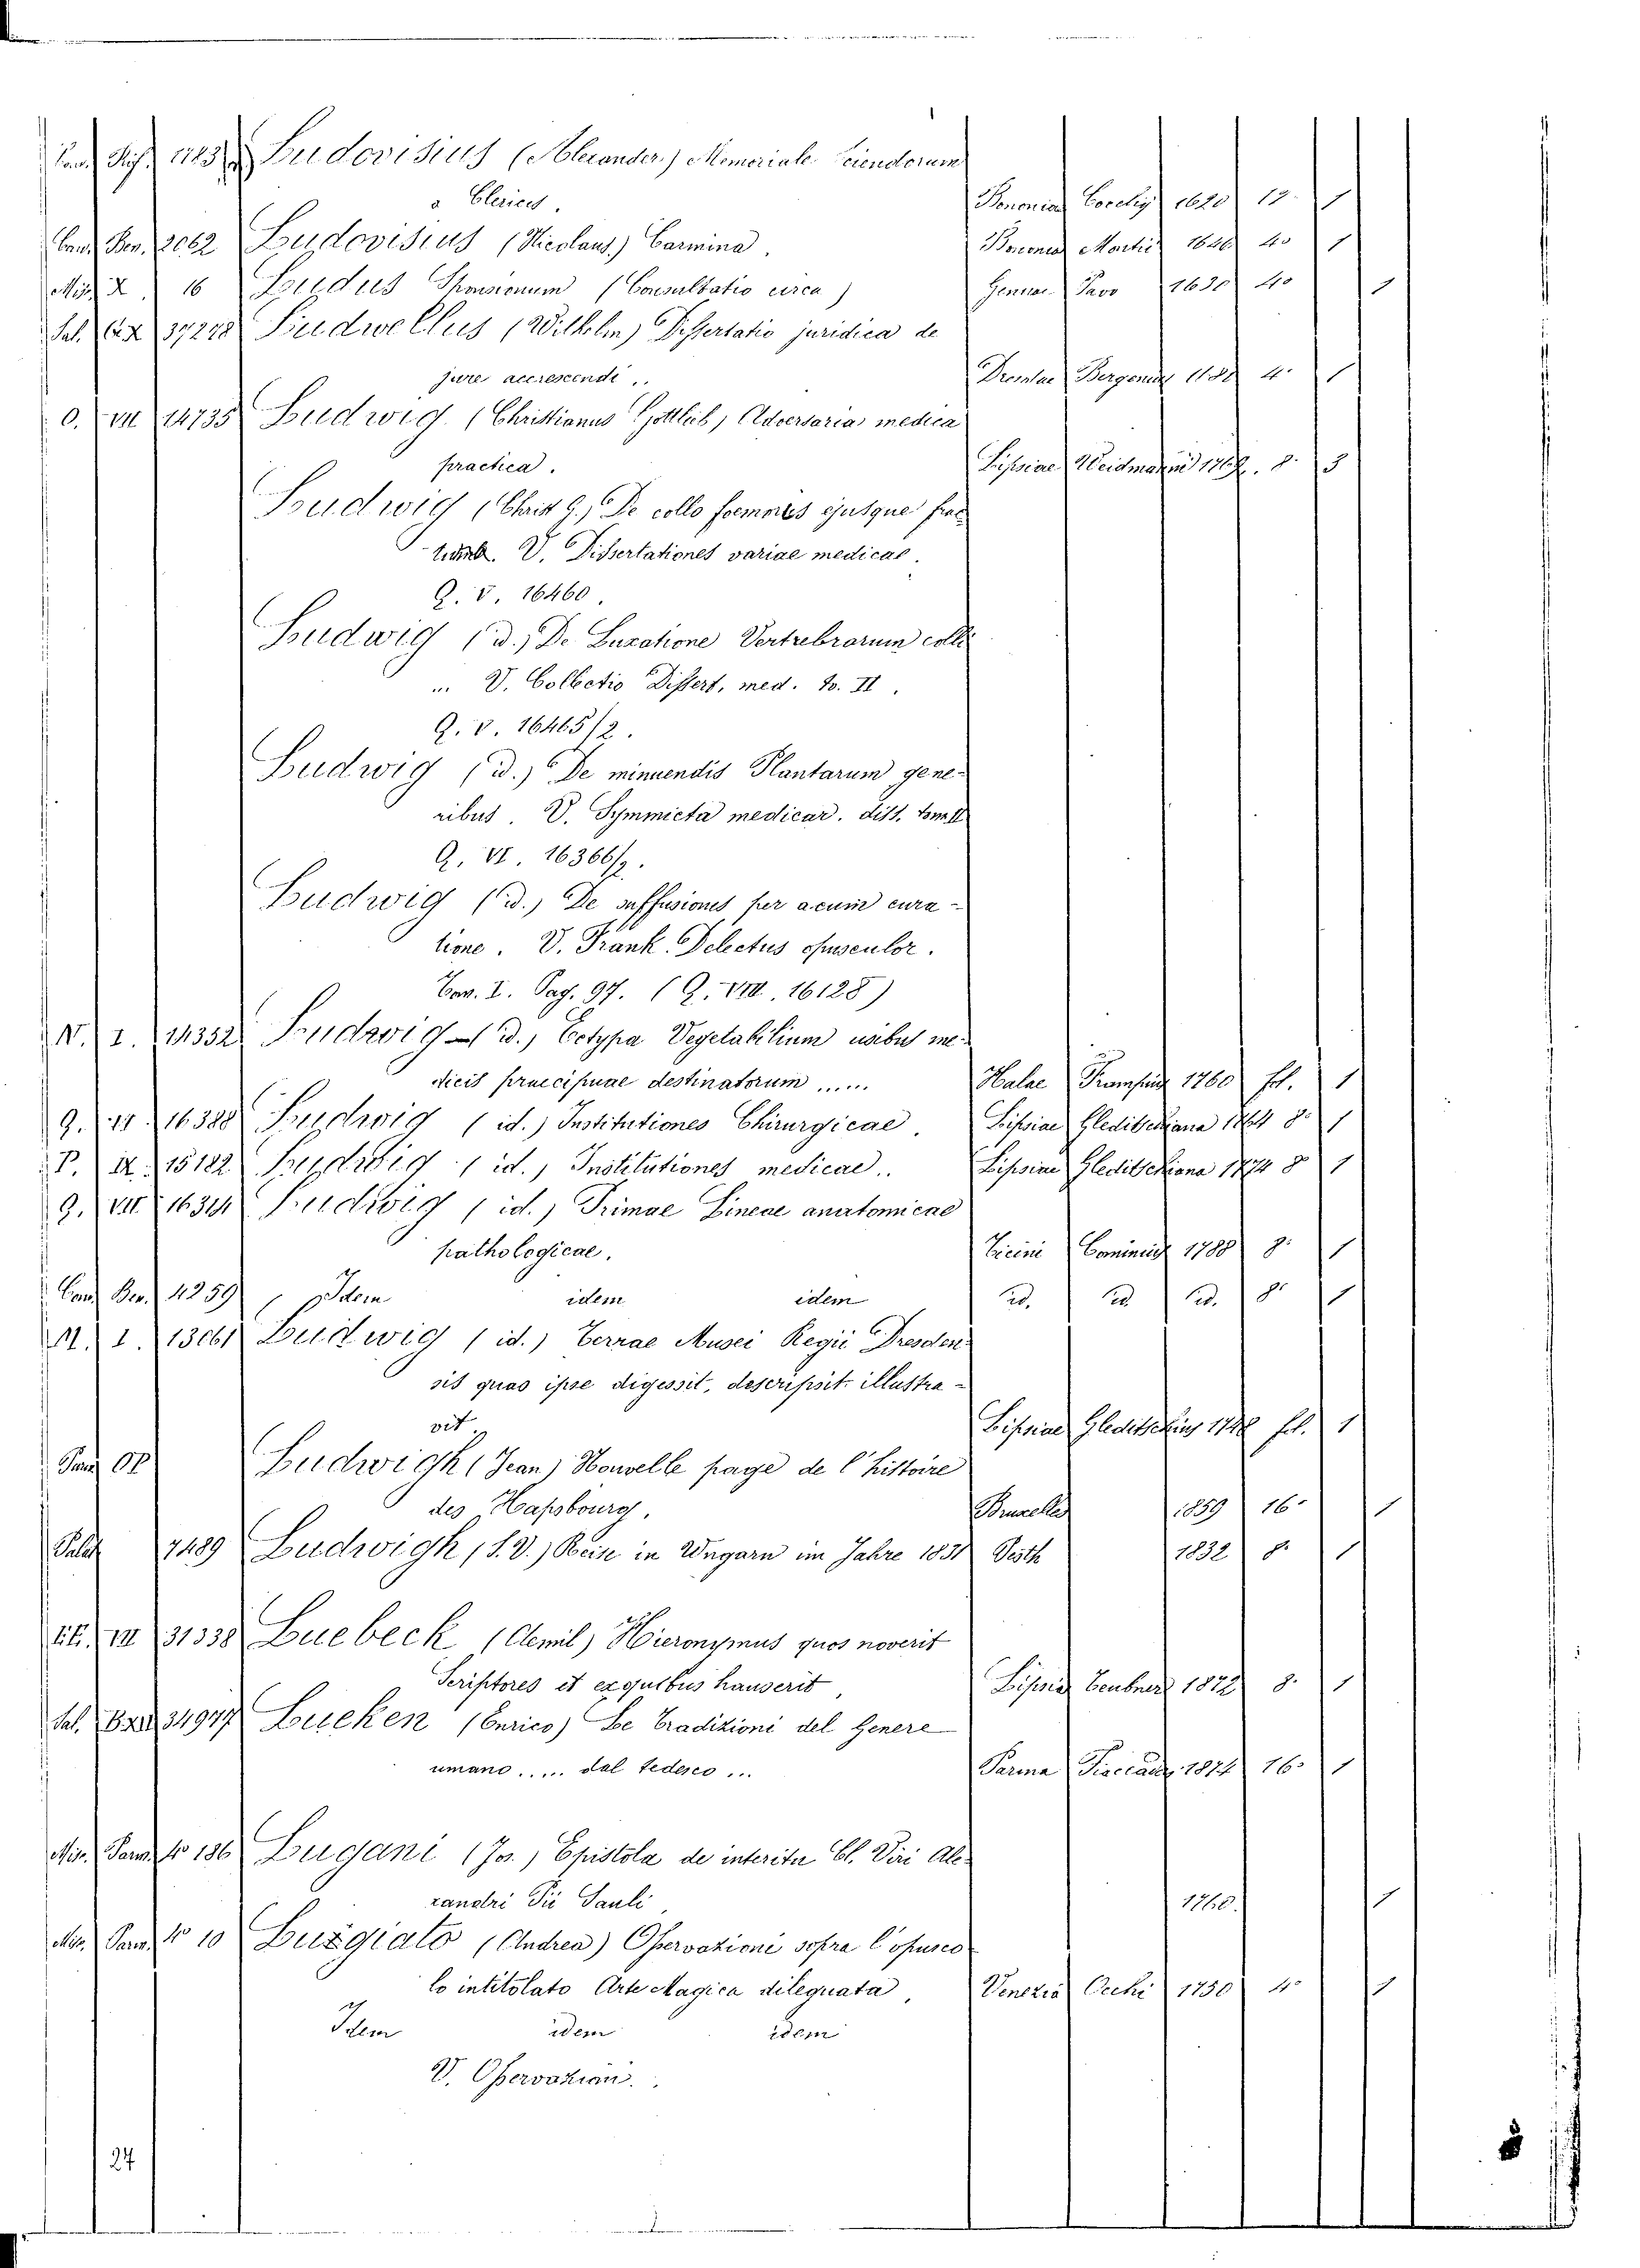 Ludovisius (Alexander.) Memoriale Sciendorum
a Clericis. Bononiae Cocchy 1620 12. 1
Ben. 2062 Ludovisius (Nicolaus.) Carmina. Bononiae Martii 1646 4o 1
X. 16 Ludus Sponsionum (Consultatio circa) Genuae Pavo 1630 4o 1
Sal. 37248 Ludwellus (Wilhelm) Dissertatio juridica de
jure accrescendi.. 4. 1
O. VII 14735 Ludwig (Christianus Gottlieb) Adversaria medica
practica. Lipsiae Weidmanni 8. 3
Ludwig (Christ G.) De collo foemoris ejusque frac
V. Dissertationes variae medicae.
Q. V. 16460.
Ludwig (id.) De Luxatione Vertrebrarum colli
... V. Collectio Dissert. med. to. II.
Q. V. 16465/2.
Ludwig (id.) De minuendis Plantarum gene-
ribus. V. Symmicta medicar. diss. tom II
Q. VI. 16366/2.
Ludwig (id.) De suffusiones per acum cura-
tione. V. Frank. Delectus opusculor.
Pag. 97. (Q. VIII. 16128)
N. I. 14352 Ludwig (id.) Ectypa Vegetabilium usibus me-
dicis praecipuae destinatorum ...... Halae 1760 fol. 1
Q. VI 16388 Ludwig (id.) Institutiones Chirurgicae. Lipsiae Gleditschiana 1764 8. 1
P. IX. 15182 Ludwig (id.) Institutiones medicae.. Lipsiae Gleditschiana 1774 8 1
Q. VII. 16344 Ludwig (id.) Primae Lineae anatomicae
pathologicae. Ticini Cominus 1788 8. 1
Ben. 4259 Idem idem idem id. id. id. 8. 1
M. I. 13061 Ludwig (id.) Terrae Musei Regii Dresden-
sis quas ipse digessit, descripsit. illustra-
vit. Lipsiae Gleditschius 1748 fol. 1
Ludwigh (Jean) Nouvelle page de l'histoire
des Hapsbourg. Bruxelles 1859 16. 1
Palat 7489 Ludwigh (S. V.) Reise in Ungarn im Jahre 1831 Pesth 1832 8. 1
VII 31338 Luebeck (Aemil) Hieronymus quos noverit
Scriptores et exquibus hauserit, Lipsiae Teubner 1872 8. 1
Sal. 34977 Lueken (Enrico) Le Tradizioni del Genere
umano..... dal tedesco ... Parma Fiaccadori 1874 16. 1
Mis. Parm. 4o 186 Lugani (Jo.) Epistola de interitu Cl. Viri Ale-
xandri Pii Pauli, 1760. 1
Mis. Parm. 4o 10 Lugiato (Andrea) Osservazioni sopra l'opusco-
lo intitolato Arte Magica dileguata, Venezia Occhi 1750 4o 1
Idem idem idem
V. Osservazioni..
24